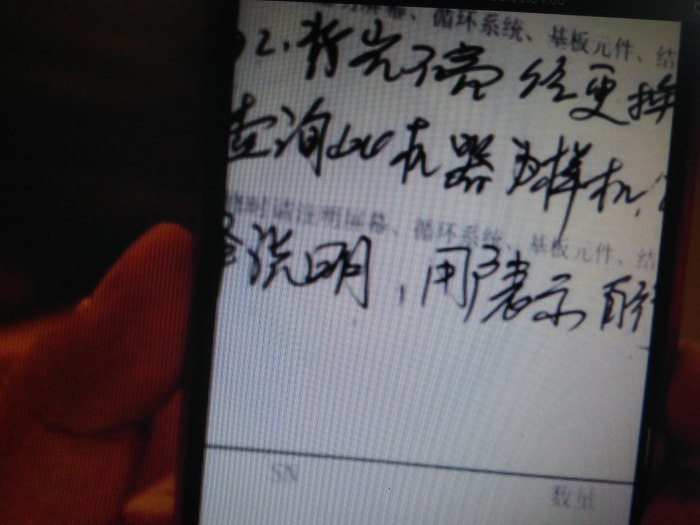 屏幕、循环系统、基板元件、结
2.背光不亮 经更换
查询此机器为样机,
时请注明屏幕、循环系统、基板元件、结
说明,用户表示
SN
数量